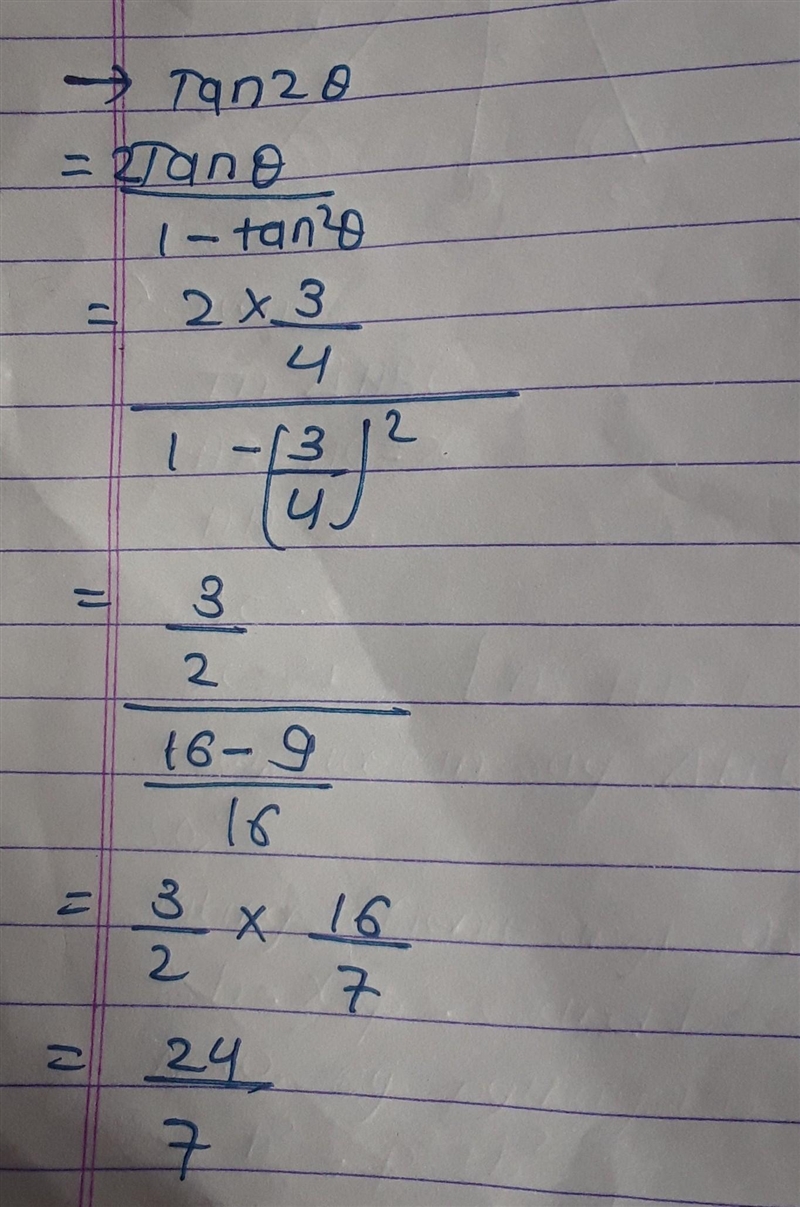 → Tan2θ
= 2Tanθ
1 - tan²θ
= 2 × 3
4
1 - (3/4)²
= 3
2
16 - 9
16
= 3/2 × 16/7
= 24
7